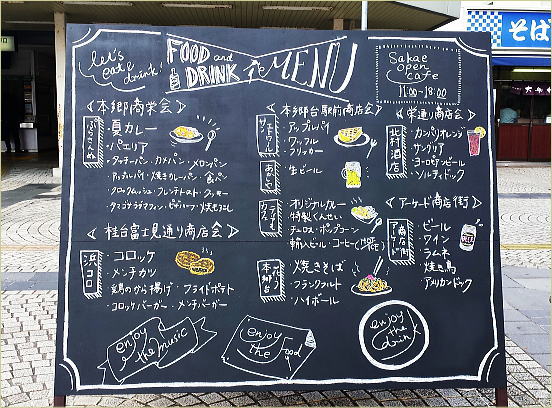 そば
let's
eat &
drink!
FOOD and
DRINK
MENU
Sakae
open
cafe
11:00~18:00
《本郷商栄会》
夏カレー
パエリア
・メロンパン
・焼きカレーパン ・食パン
・クロックムッシュ ・フレンチトースト ・クッキー
《桂台富士見通り商店会》
浜コロ
コロッケ
メンチカツ
鶏のから揚げ ・フライドポテト
・コロッケバーガー ・メンチバーガー
《本郷台駅前商店会》
・アップルパイ
・ワッフル
・生ビール
・オリジナルカレー
・特製くんせい
・チュロス ・ポップコーン
・輸入ビール ・コーヒー(HOT ICE)
一花
本郷台
・焼きそば
・フランクフルト
・ハイボール
《栄通り商店会》
北村酒店
・カンパリオレンジ
・サングリア
・ヨーロピアンビール
・ソルティドック
《アーケード商店街》
アーケード
商店街
・ビール
・ワイン
・ラムネ
・焼き鳥
・アメリカンドック
enjoy
the music
enjoy
the Food
enjoy
the
drink